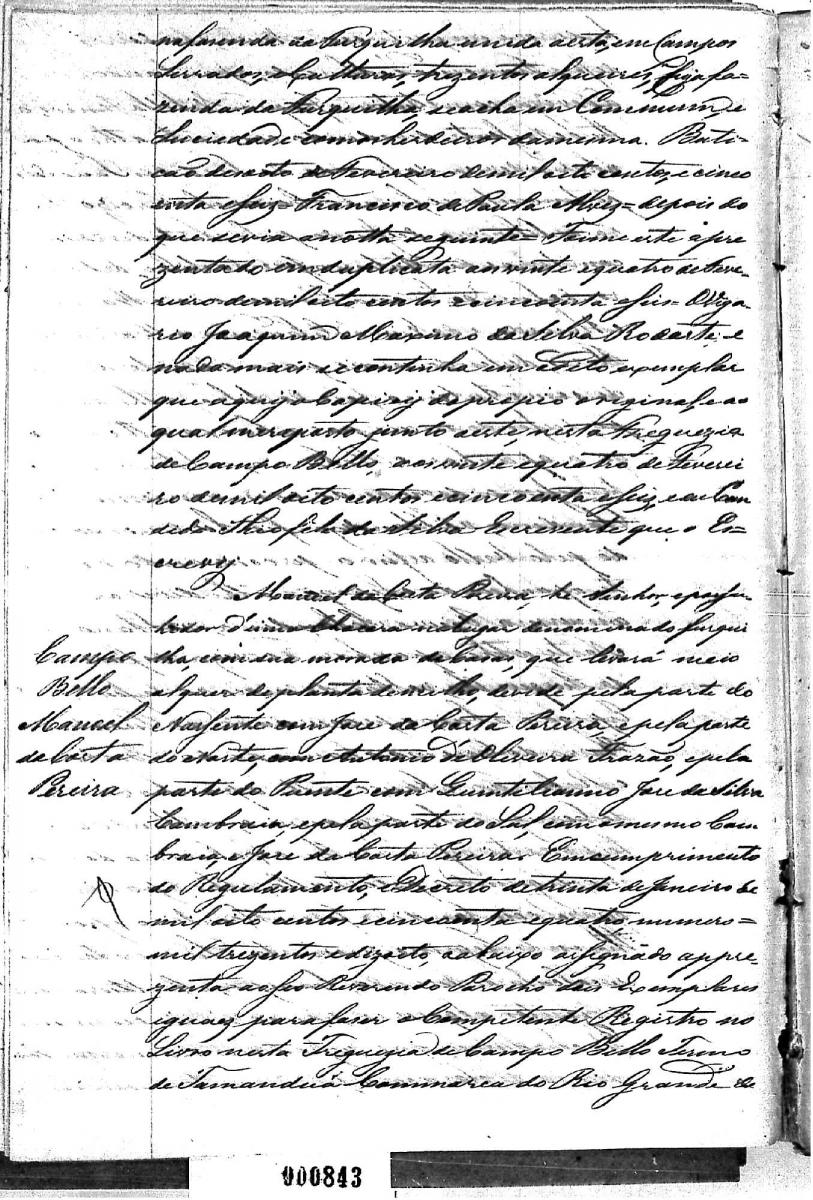 na fasenda da Furquilha unida a esta, em Campos
Serrados, e Culturas, trezentos alqueires, Cuja fa-
zenda da Furquilha, se acha em Commum, e
Suciedade com os herdeiros da mesma.
dezoito de Fevereiro de mil oito centos, e cinco
enta e seis = Francisco de Paula Alvez = depois do
que se via a notta seguinte = Foi me este apre
zentado em duplicata aos vinte e quatro de Feve-
reiro de mil oito centos e cincoenta e seis = O Viga-
rio Joaquim Maximo da Silva Rodarte e
nada mais se continha em o dito exemplar
que aqui Copiey do propio original, e ao
qual me reporto junto a este, nesta Freguezia
de Campo Bello, aos vinte e quatro de Feverei
ro de mil oito centos e cincoenta e seis, e eu Can
dido Theofilo da Silva Escrevente que o Es-
crevy
Manoel da Costa Pereira, he Senhor, e possu-
hidor d'uma Chacara no lugar denominado Furqui
lha, com sua morada de Casas, que levará meio
alquer de planta de milho, devide pela parte do
Nassente com José da Costa Pereira, e pela parte
do Norte, com Antonio de Oliveira Frazão, e pela
parte do Puente com Quinteliano José da Silva
Cambraia, e pela parte do Sul, com o mesmo Cam
braia, e José da Costa Pereira. Em cumprimento
do Regulamento, e Decreto de trinta de Janeiro de
mil oito centos e cincoenta e quatro, numero =
mil trezentos e dizoito, o abaixo assignado appre-
zenta ao seo Reverendo Parocho dois Exemplares
iguaez para faser o Competente Registro no
Livro nesta Freguezia de Campo Bello Termo
de Tamanduá Commarca do Rio Grande de
Campo
Bello
Manoel
da Costa
Pereira
000843